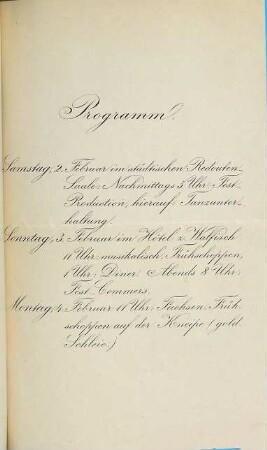 Programm.
Samstag, 2. Februar im städtischen Redouten-
Saale: Nachmittags 5 Uhr: Fest-
Production, hierauf: Tanzunter-
haltung.
Sonntag, 3. Februar im Hôtel z. Walfisch
11 Uhr: musikalisch. Frühschoppen,
1 Uhr: Diner. Abends 8 Uhr:
Fest-Commers.
Montag, 4. Februar 11 Uhr: Fuchsen-Früh-
schoppen auf der Kneipe (gold.
Schleie.)